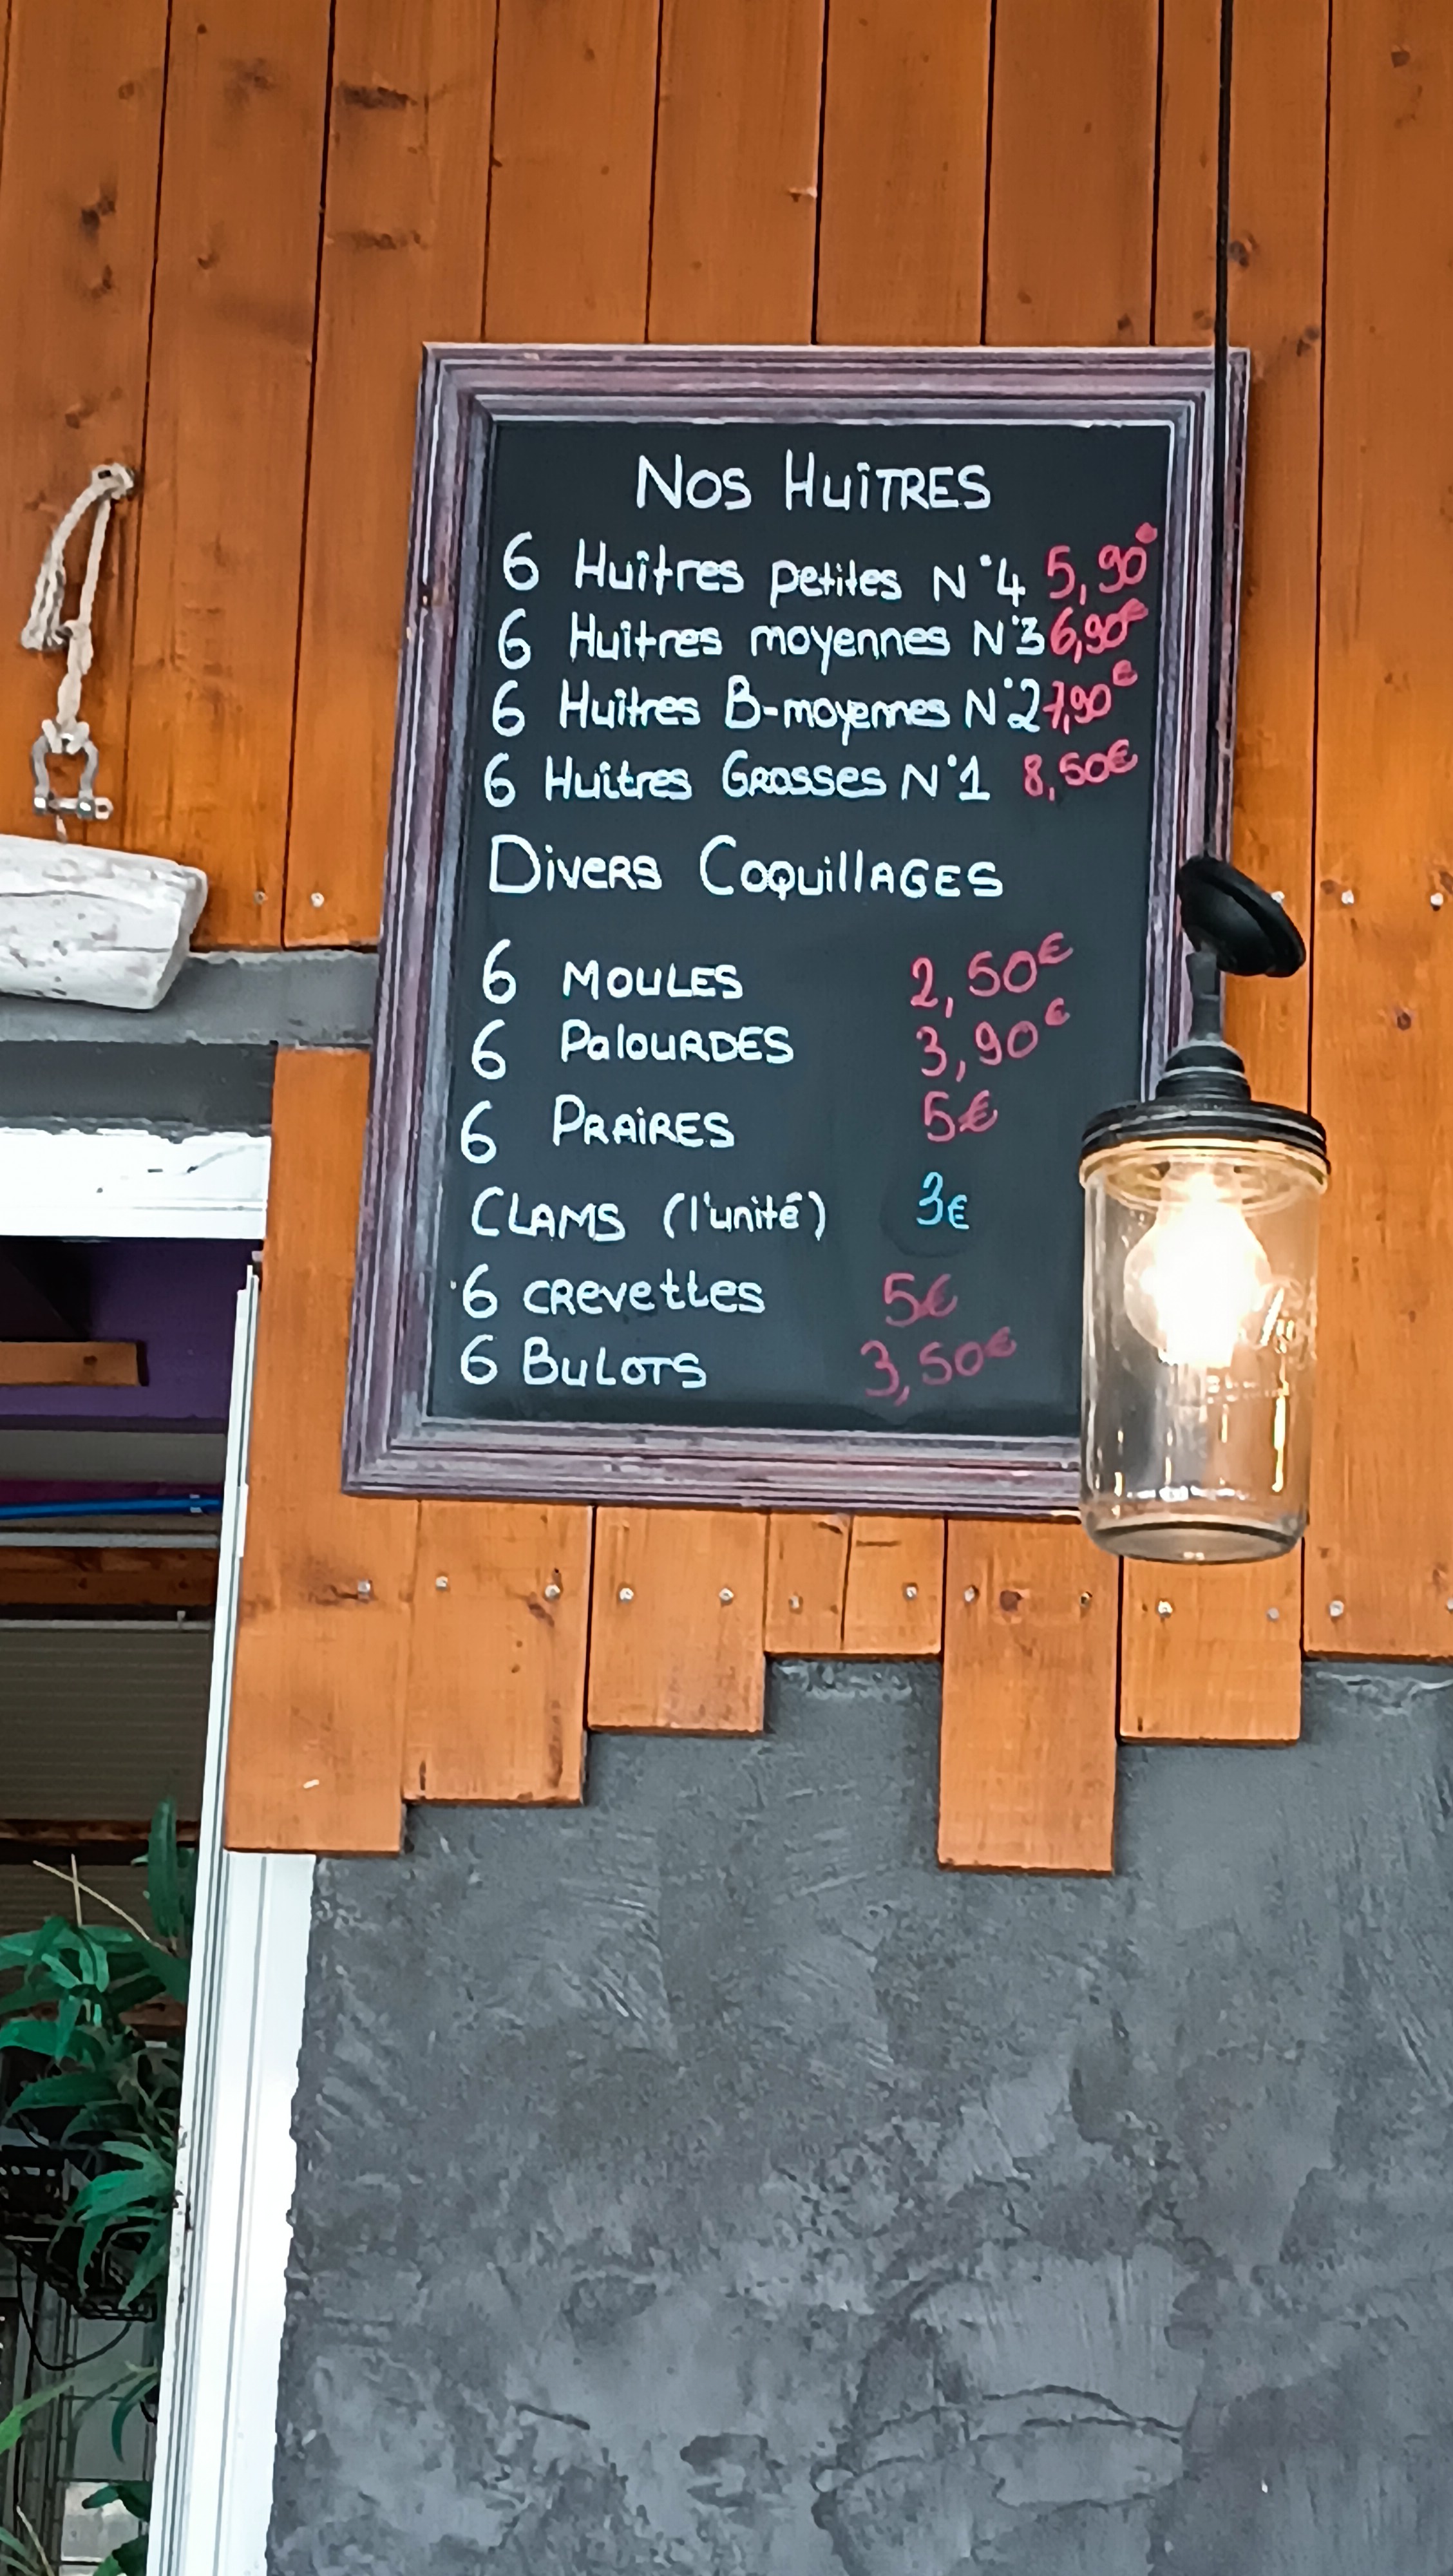 Nos Huîtres
6 Huîtres petites N°4 5,90€
6 Huîtres moyennes N°3 6,90€
6 Huîtres B-moyennes N°2 7,90€
6 Huîtres Grosses N°1 8,50€
Divers Coquillages
6 Moules 2,50€
6 Palourdes 3,90€
6 Praires 5€
Clams (l'unité) 3€
6 crevettes 5€
6 Bulots 3,50€